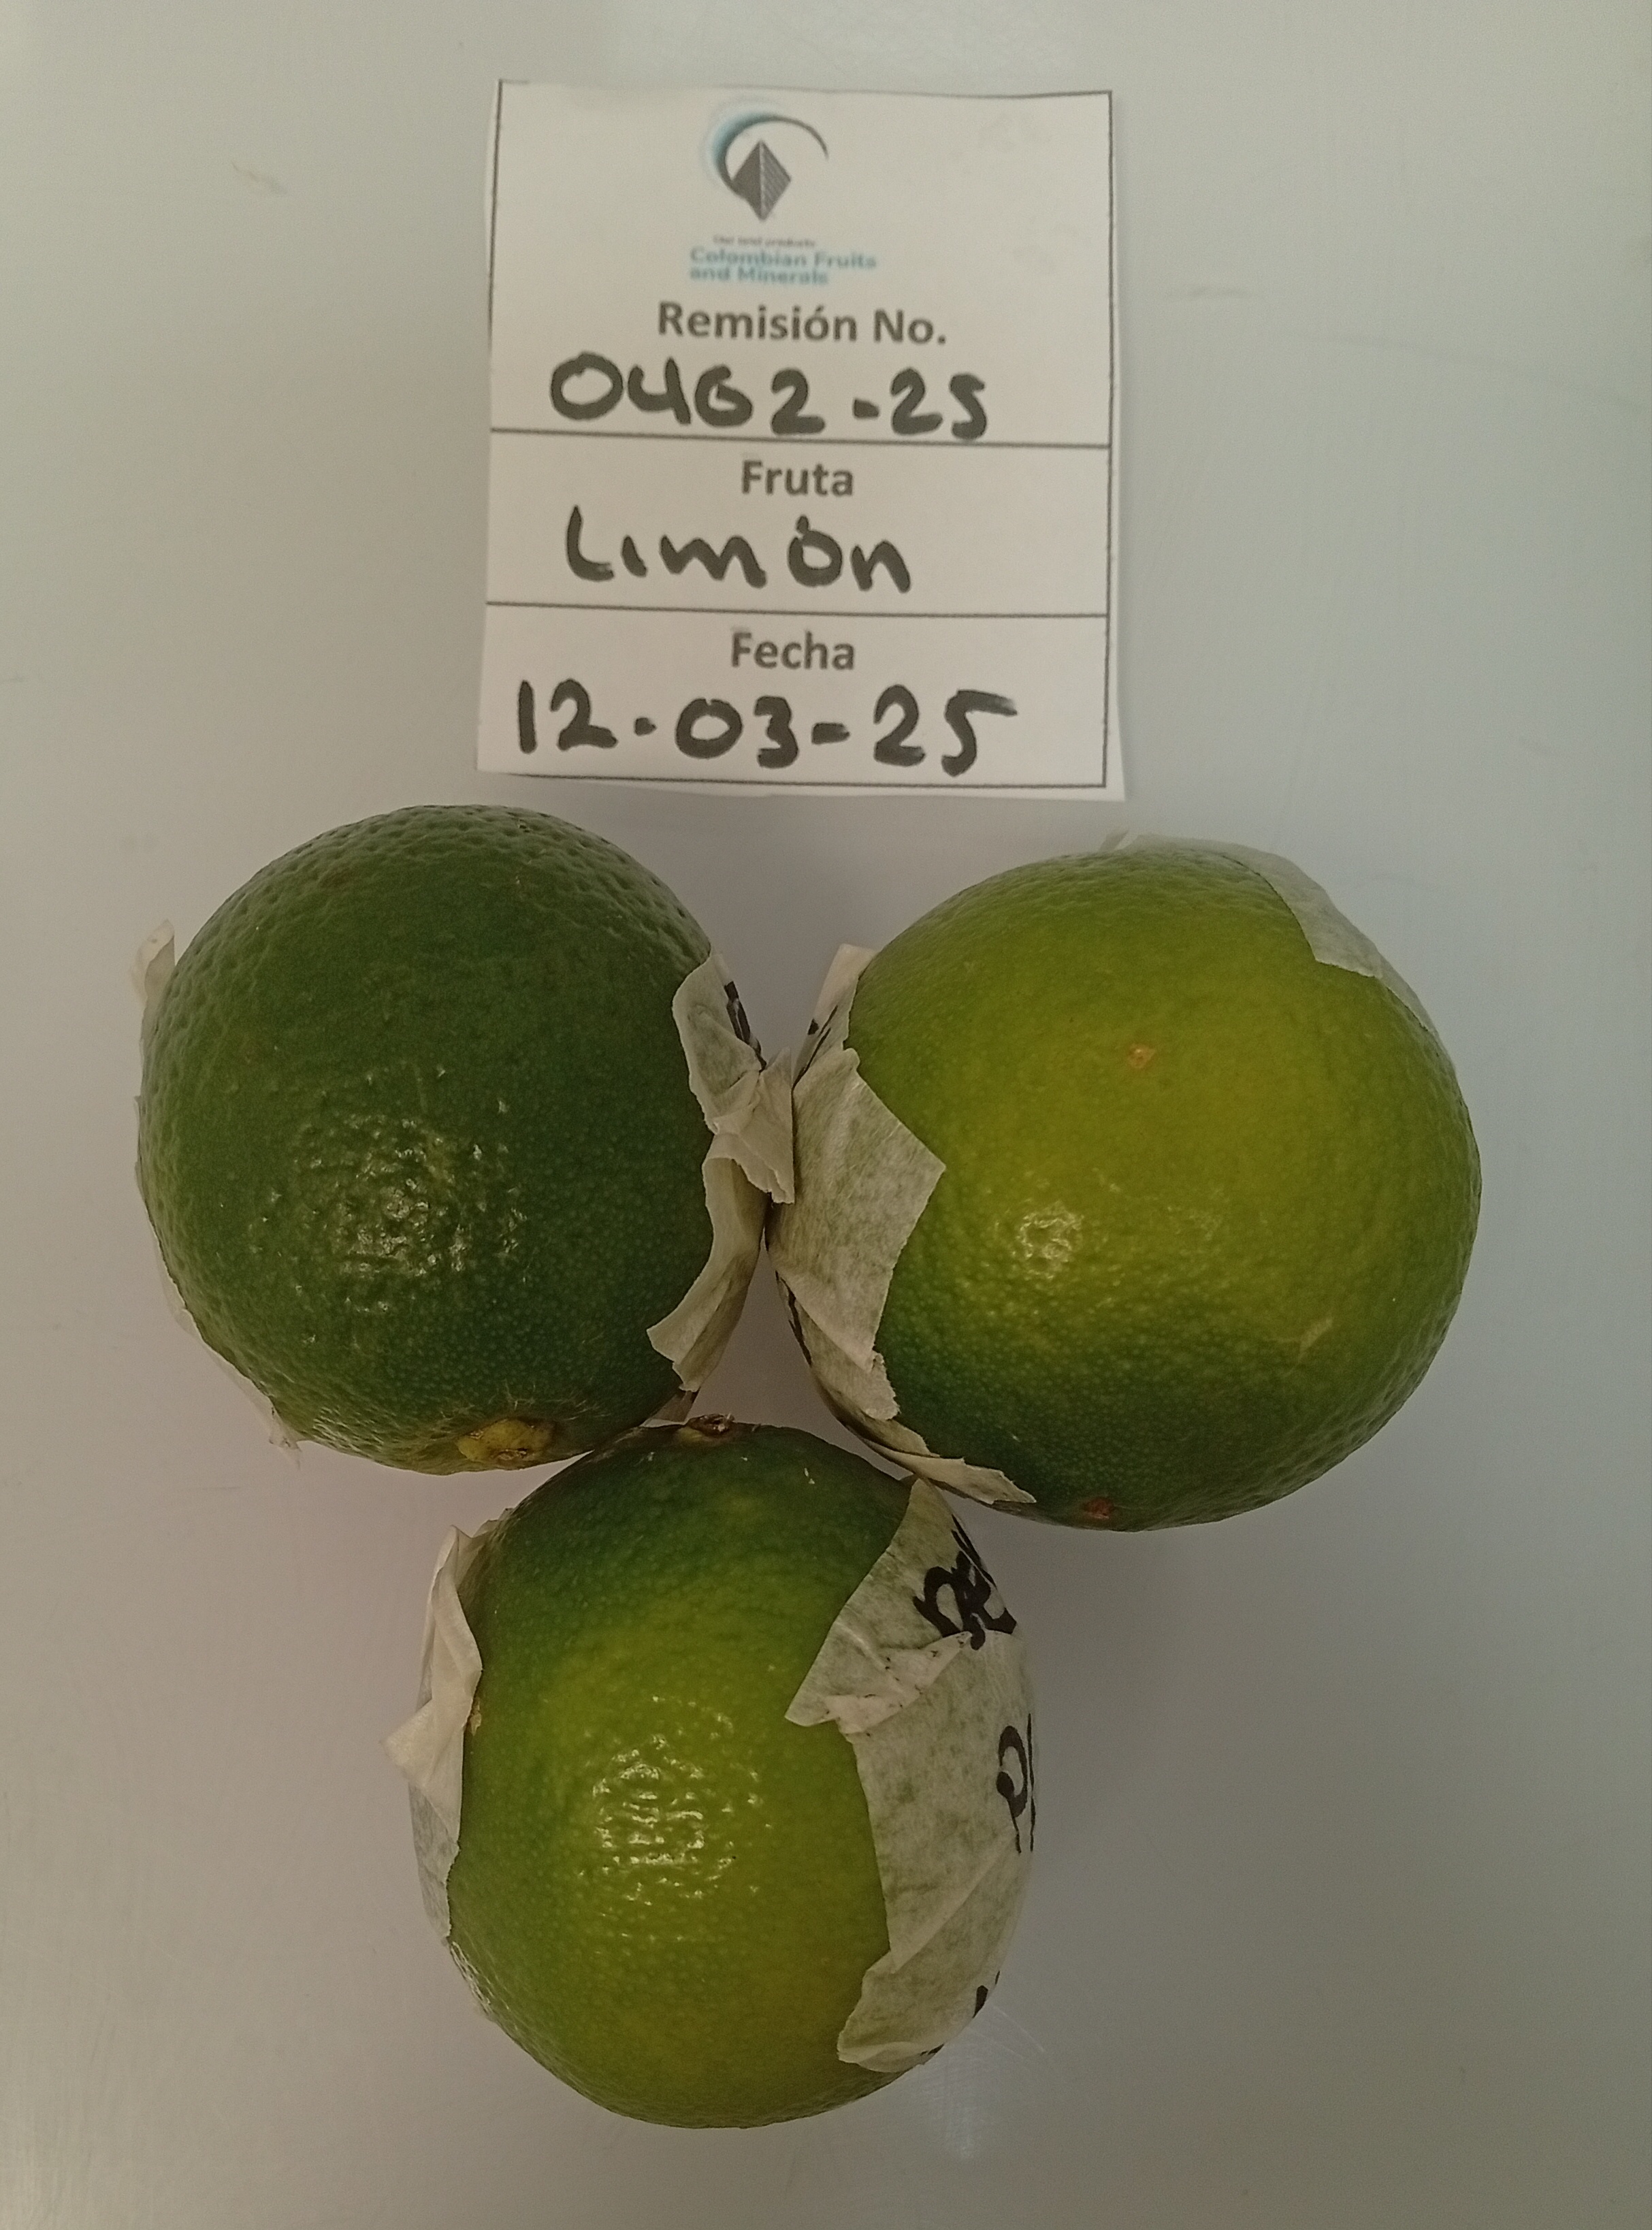 Our land products
Colombian Fruits
and Minerals
Remisión No.
0462-25
Fruta
Limón
Fecha
12-03-25